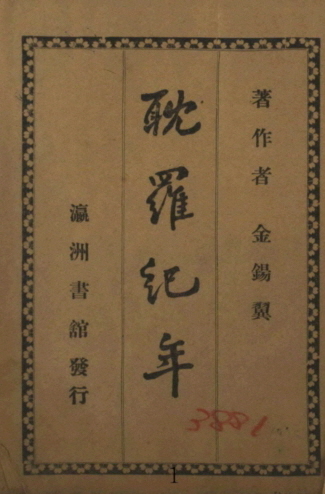 著作者 金錫翼
耽羅紀年
瀛洲書館發行
3881
1